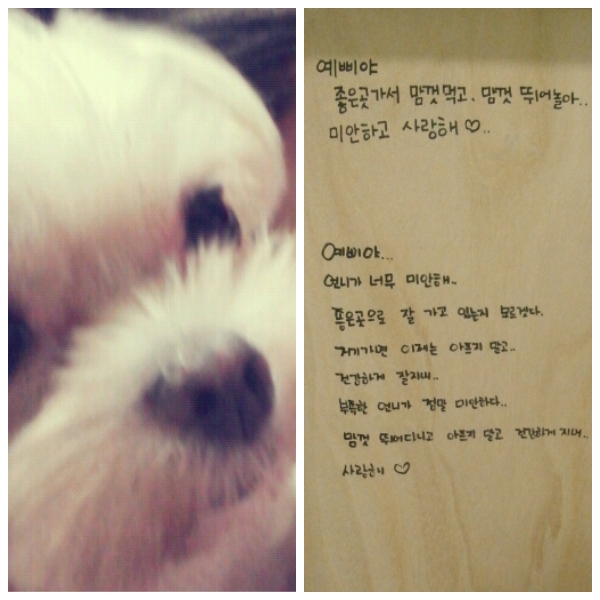 예삐야
좋은곳가서 맘껏먹고, 맘껏 뛰어놀아..
미안하고 사랑해 ♡..
예삐야...
언니가 너무 미안해..
좋은곳으로 잘 가고 있는지 모르겠다.
거기가면 이제는 아프지 말고..
건강하게 잘지내..
부족한 언니가 정말 미안하다..
맘껏 뛰어다니고 아프지 말고 건강하게 지내..
사랑해 ♡